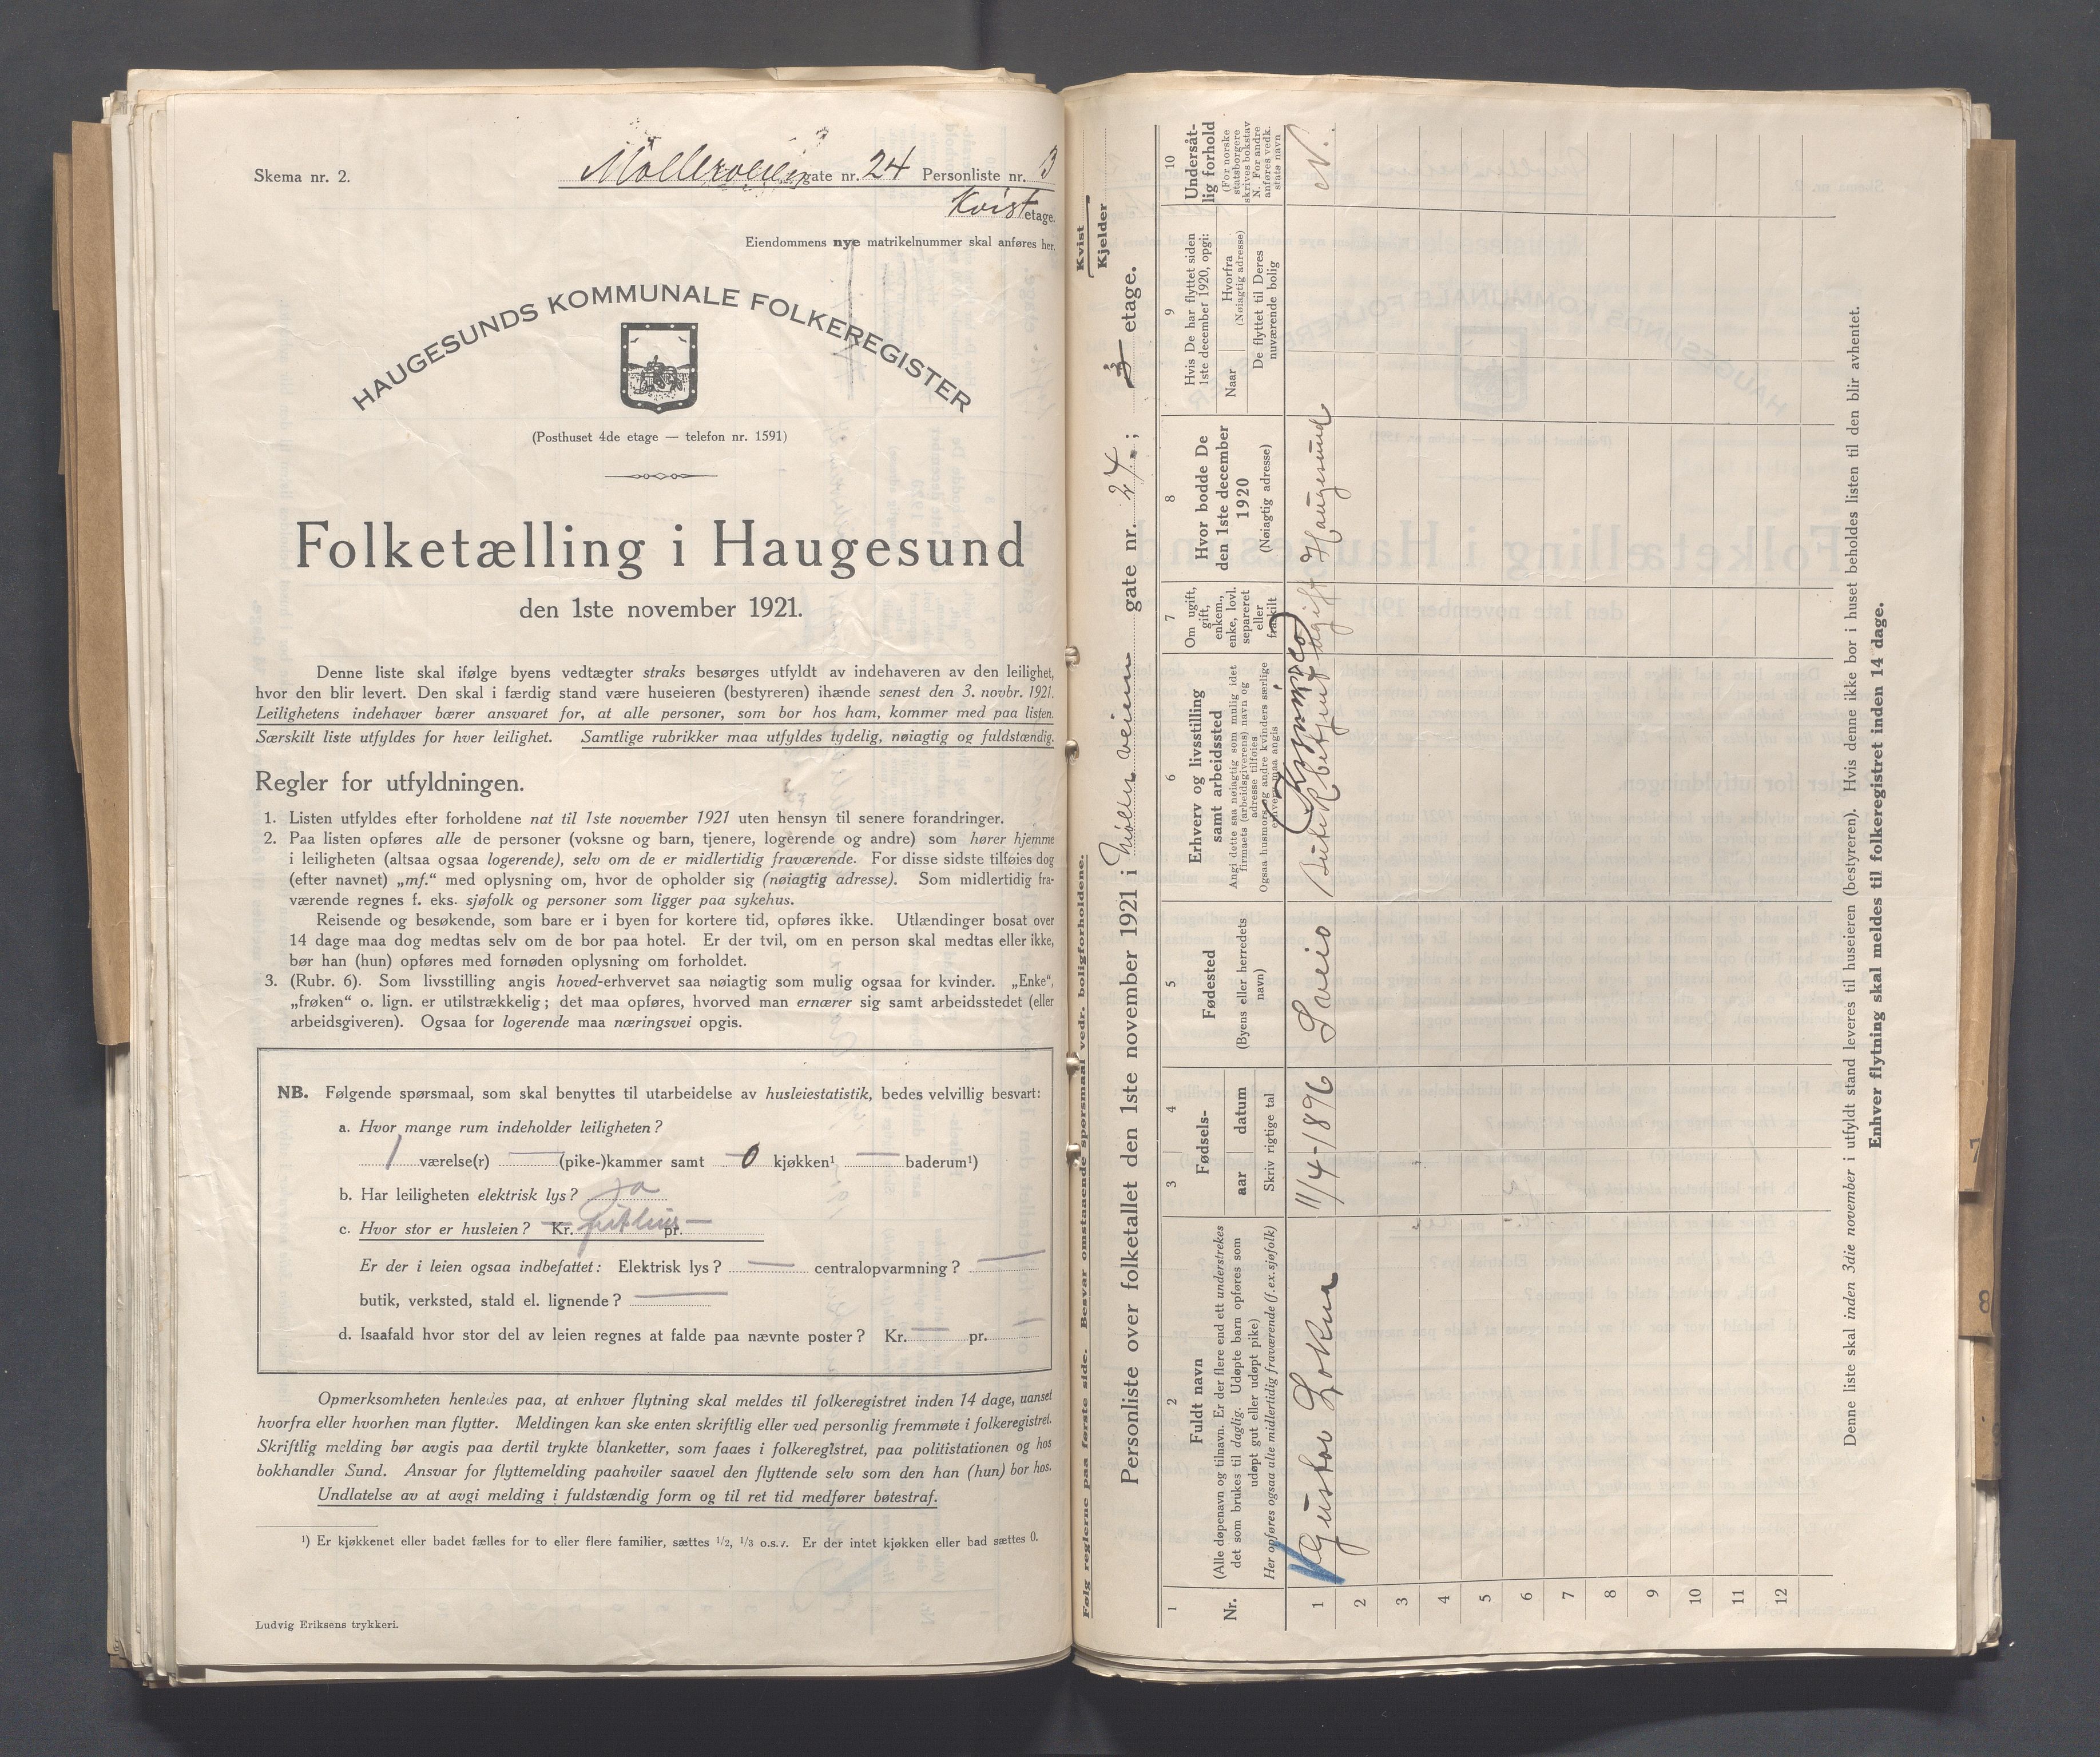 Skema nr. 2.
Mølleveien gate nr. 24 Personliste nr. 3
Kvist etage.
Eiendommens nye matrikelnummer skal anføres her.
HAUGESUNDS KOMMUNALE FOLKEREGISTER
(Posthuset 4de etage — telefon nr. 1591)
Folketælling i Haugesund
den 1ste november 1921.
Denne liste skal ifølge byens vedtægter straks besørges utfyldt av indehaveren av den leilighet,
hvor den blir levert. Den skal i færdig stand være huseieren (bestyreren) ihænde senest den 3. novbr. 1921.
Leilighetens indehaver bærer ansvaret for, at alle personer, som bor hos ham, kommer med paa listen.
Særskilt liste utfyldes for hver leilighet. Samtlige rubrikker maa utfyldes tydelig, nøiagtig og fuldstændig.
Regler for utfyldningen.
1. Listen utfyldes efter forholdene nat til 1ste november 1921 uten hensyn til senere forandringer.
2. Paa listen opføres alle de personer (voksne og barn, tjenere, logerende og andre) som hører hjemme
i leiligheten (altsaa ogsaa logerende), selv om de er midlertidig fraværende. For disse sidste tilføies dog
(efter navnet) „mf.“ med oplysning om, hvor de opholder sig (nøiagtig adresse). Som midlertidig fra-
værende regnes f. eks. sjøfolk og personer som ligger paa sykehus.
Reisende og besøkende, som bare er i byen for kortere tid, opføres ikke. Utlændinger bosat over
14 dage maa dog medtas selv om de bor paa hotel. Er der tvil, om en person skal medtas eller ikke,
bør han (hun) opføres med fornøden oplysning om forholdet.
3. (Rubr. 6). Som livsstilling angis hoved-erhvervet saa nøiagtig som mulig ogsaa for kvinder. „Enke“,
„frøken“ o. lign. er utilstrækkelig; det maa opføres, hvorved man ernærer sig samt arbeidsstedet (eller
arbeidsgiveren). Ogsaa for logerende maa næringsvei opgis.
NB. Følgende spørsmaal, som skal benyttes til utarbeidelse av husleiestatistik, bedes velvillig besvart:
a. Hvor mange rum indeholder leiligheten?
1 værelse(r) — (pike-)kammer samt 0 kjøkken¹ — baderum¹)
b. Har leiligheten elektrisk lys? Ja
c. Hvor stor er husleien? Kr. pr. —
Er der i leien ogsaa indbefattet: Elektrisk lys? — centralopvarmning? —
butik, verksted, stald el. lignende? —
d. Isaafald hvor stor del av leien regnes at falde paa nævnte poster? Kr. — pr. —
Opmerksomheten henledes paa, at enhver flytning skal meldes til folkeregistret inden 14 dage, uanset
hvorfra eller hvorhen man flytter. Meldingen kan ske enten skriftlig eller ved personlig fremmøte i folkeregistret.
Skriftlig melding bør avgis paa dertil trykte blanketter, som faaes i folkeregistret, paa politistationen og hos
bokhandler Sund. Ansvar for flyttemelding paahviler saavel den flyttende selv som den han (hun) bor hos.
Undlatelse av at avgi melding i fuldstændig form og til ret tid medfører bøtestraf.
¹) Er kjøkkenet eller badet fælles for to eller flere familier, sættes 1/2, 1/3 o.s.v. Er der intet kjøkken eller bad sættes 0.
Ludvig Eriksens trykkeri.
Følg reglerne paa første side. Besvar omstaaende spørsmaal vedr. boligforholdene.
Kvist
Kjelder
Personliste over folketallet den 1ste november 1921 i Mølleveien gate nr. 24; 3 etage.
1 2 3 4 5 6 7 8 9 10
Nr.
Fuldt navn
(Alle døpenavn og tilnavn. Er der flere end ett understrekes
det som brukes til daglig. Udøpte barn opføres som
udøpt gut eller udøpt pike)
Her opføres ogsaa alle midlertidig fraværende (f. ex. sjøfolk)
Fødsels-
aar datum
Skriv rigtige tal
Fødested
(Byens eller herredets
navn)
Erhverv og livsstilling
samt arbeidssted
Angi dette saa nøiagtig som mulig idet
firmaets (arbeidsgiverens) navn og
adresse tilføies
Ogsaa husmors og andre kvinders særlige
erhverv maa angis
Om ugift,
gift,
enkem.,
enke, lovl.
separeret
eller
fraskilt
Hvor bodde De
den 1ste december
1920
(Nøiagtig adresse)
Hvis De har flyttet siden
1ste december 1920, opgi:
Naar
Hvorfra
(Nøiagtig adresse)
De flyttet til Deres
nuværende bolig
Undersåt-
lig forhold
(For norske
statsborgere
skrives bokstav
N. For andre
anføres vedk.
stats navn
1 Gustav Lokna 11/4-1896 Sveio Butikbetjent ugift Haugesund N.
2
3
4
5
6
7
8
9
10
11
12
Denne liste skal inden 3die november i utfyldt stand leveres til huseieren (bestyreren). Hvis denne ikke bor i huset beholdes listen til den blir avhentet.
Enhver flytning skal meldes til folkeregistret inden 14 dage.
7
8